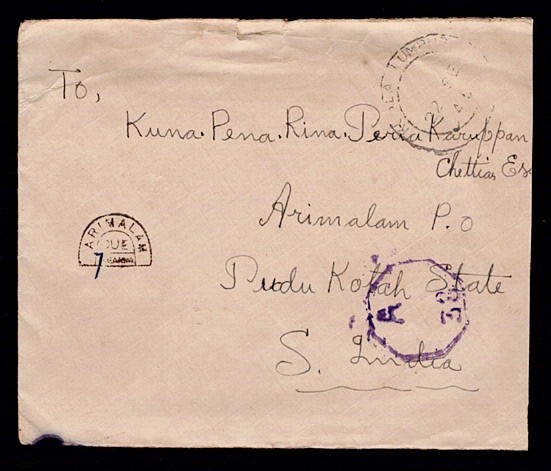 To,
Kuna. Pena. Rina. Peria Karuppan
Chettiar Esq
Arimalam P.O
Pudu Kotah State
S. India
ARIMALAM
DUE
7
LUMPUR
A